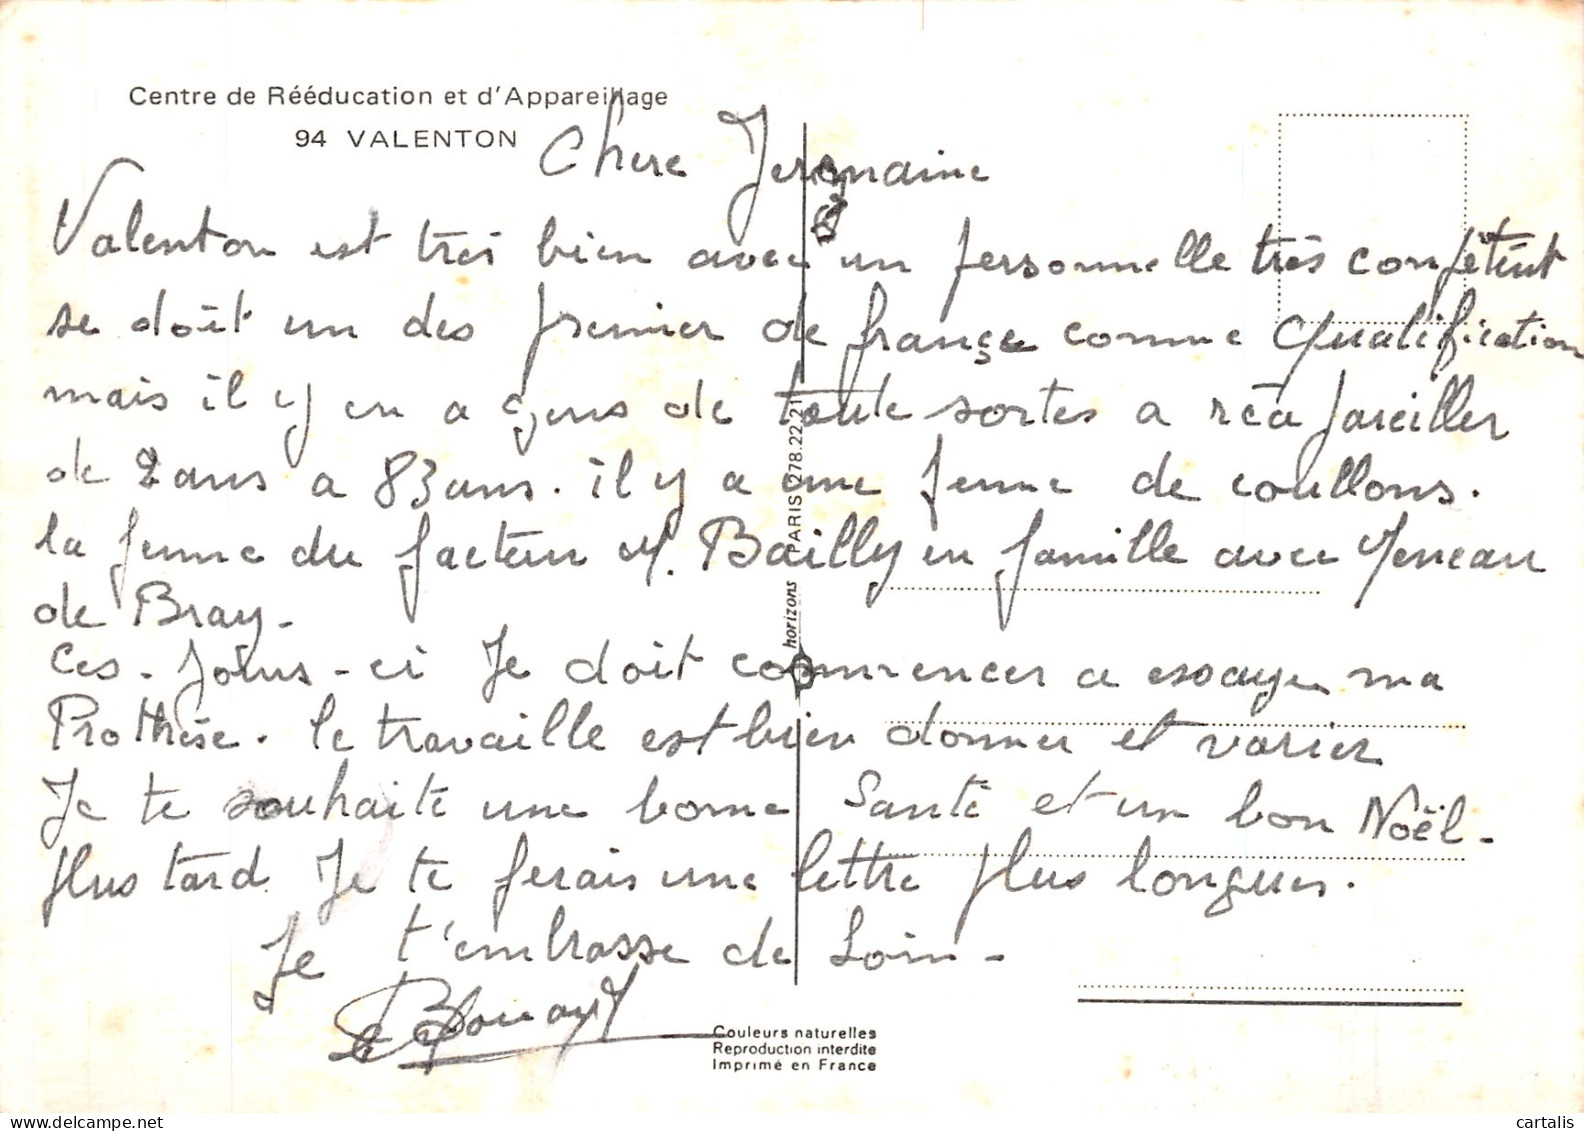 Centre de Rééducation et d'Appareillage
94 VALENTON
Chere Jermaine
Valenton est très bien avec un personnelle très compétent
se doit un des premier de françe comme Qualification
mais il y en a gens de toute sortes a réapareiller
de 2 ans a 83 ans. il y a une femme de coullons.
la femme du facteur M. Bailly en famille avec
de Bray -
Ces - Joins - ci Je doit commencer a essayer ma
Prothèse. le travaille est bien donner et varier
Je te souhaite une bonne Santé et un bon Noël -
plus tard Je te ferais une lettre plus longues.
Je t'embrasse de Loin -
horizons PARIS 278.22.21
Couleurs naturelles
Reproduction interdite
Imprimé en France
cartalis